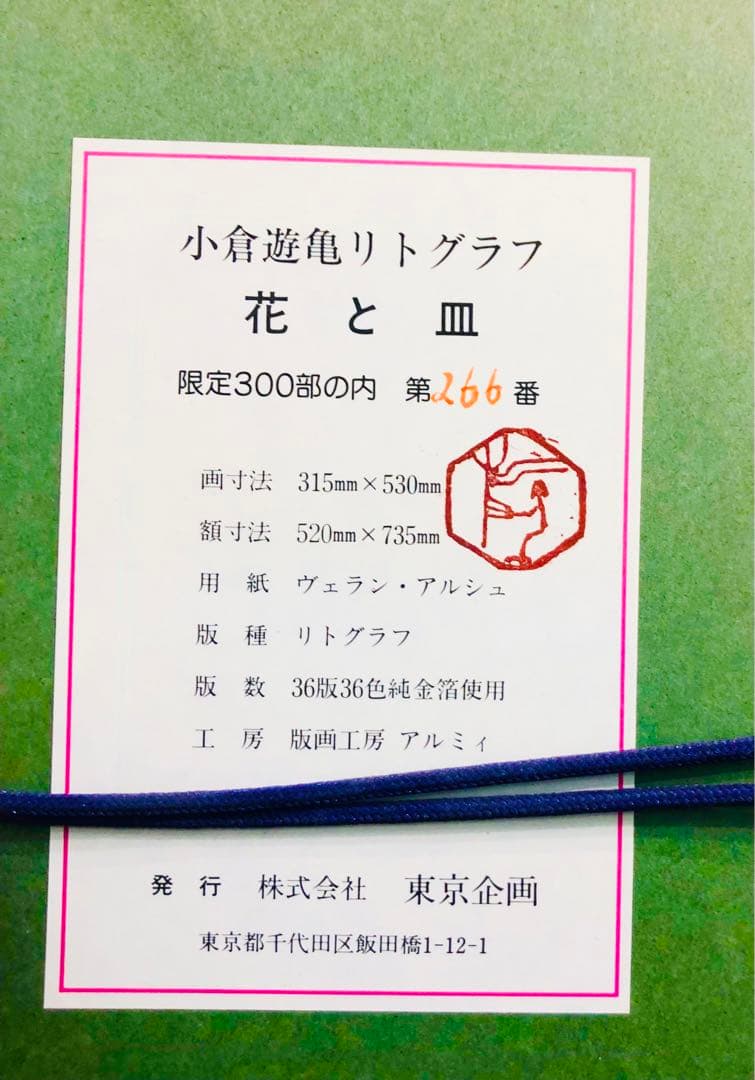 小倉遊亀リトグラフ
花と皿
限定300部の内 第266番
画寸法 315mm×530mm
額寸法 520mm×735mm
用紙 ヴェラン・アルシュ
版種 リトグラフ
版数 36版36色純金箔使用
工房 版画工房 アルミィ
発行 株式会社 東京企画
東京都千代田区飯田橋1-12-1